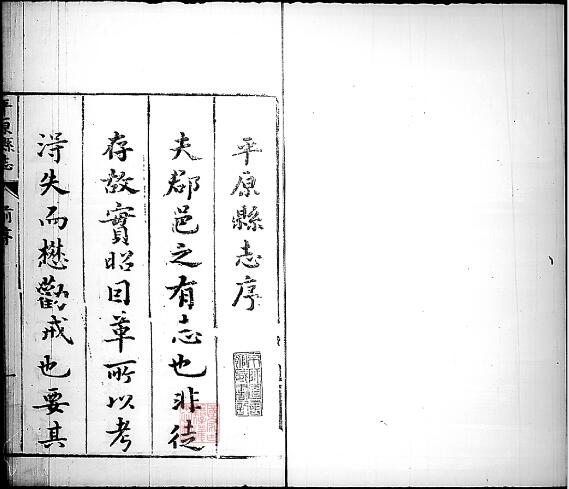 平原縣志序
夫郡邑之有志也非徒
存故實昭因革所以考
得失而懋勸戒也要其
平原縣志
前序